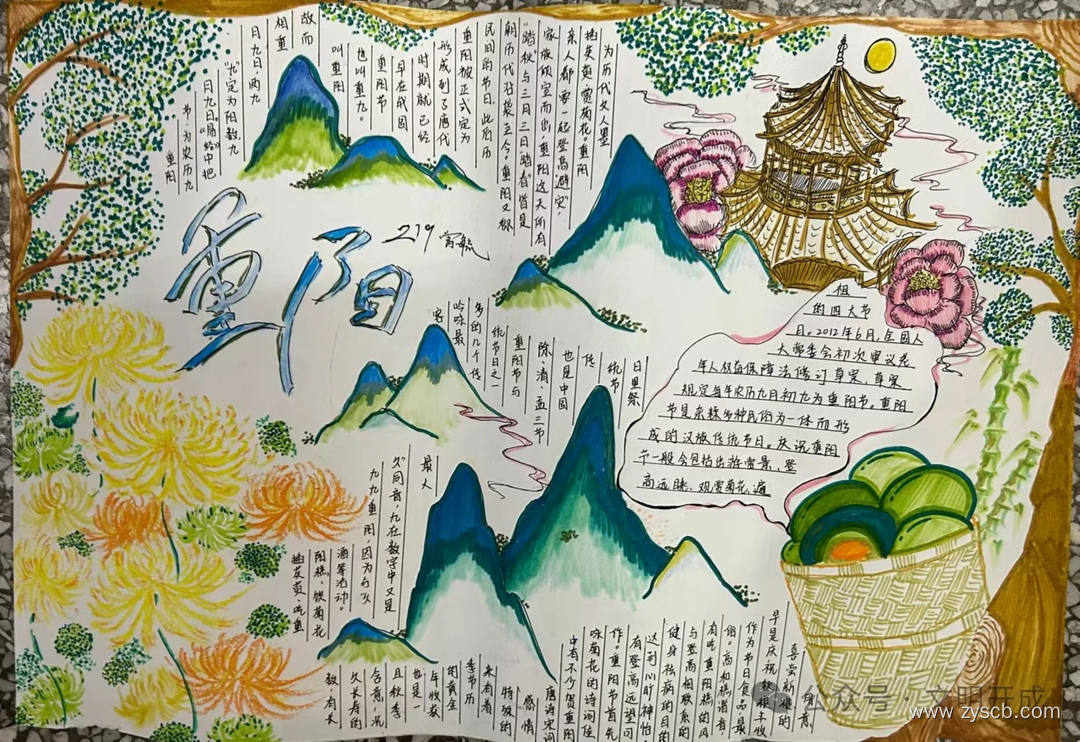 重阳
219
节,为农历九
月九日。《易经》中把
“九”定为阳数,九
月九日,两九
相重
故而
叫重阳
也叫重九。
重阳节
早在战国
时期就已经
形成,到了唐代
重阳被正式定为
民间的节日,此后历
朝历代沿袭至今。重阳又称
“踏秋”与三月三日“踏春”皆是
家族倾室而出,重阳这天所有
亲人都要一起登高“避灾”,
插茱萸、赏菊花
为历代文人墨
客
吟咏最
多的几个传
统节日之一
重阳节与
除、清、盂三节
也是中国
传
统节
日里祭
祖
的四大节
日。2012年6月,全国人
大常委会初次审议老
年人权益保障法修订草案,草案
规定每年农历九月初九为重阳节。重阳
节是杂糅多种民俗为一体而形
成的汉族传统节日。庆祝重阳
节一般会包括出游赏景、登
高远眺、观赏菊花、遍
插茱萸、吃重
阳糕、饮菊花
酒等活动。
九九重阳,因为与“久
久”同音,九在数字中又是
最大
数,有长
久长寿的
含意,况
且秋季
也是一
年收获
的黄金
季节
来有着
特殊的
感情
唐诗宋词
中有不少贺重阳
咏菊花的诗词佳
作。重阳节首先
有登高远望可
达到心旷神怡
健身祛病的目的
与登高相联系的
有吃重阳糕的风
俗,高和糕谐音
作为节日食品,最
早是庆祝秋粮丰收
喜尝新粮的
公众号 · 文明开成
www.zyscb.com